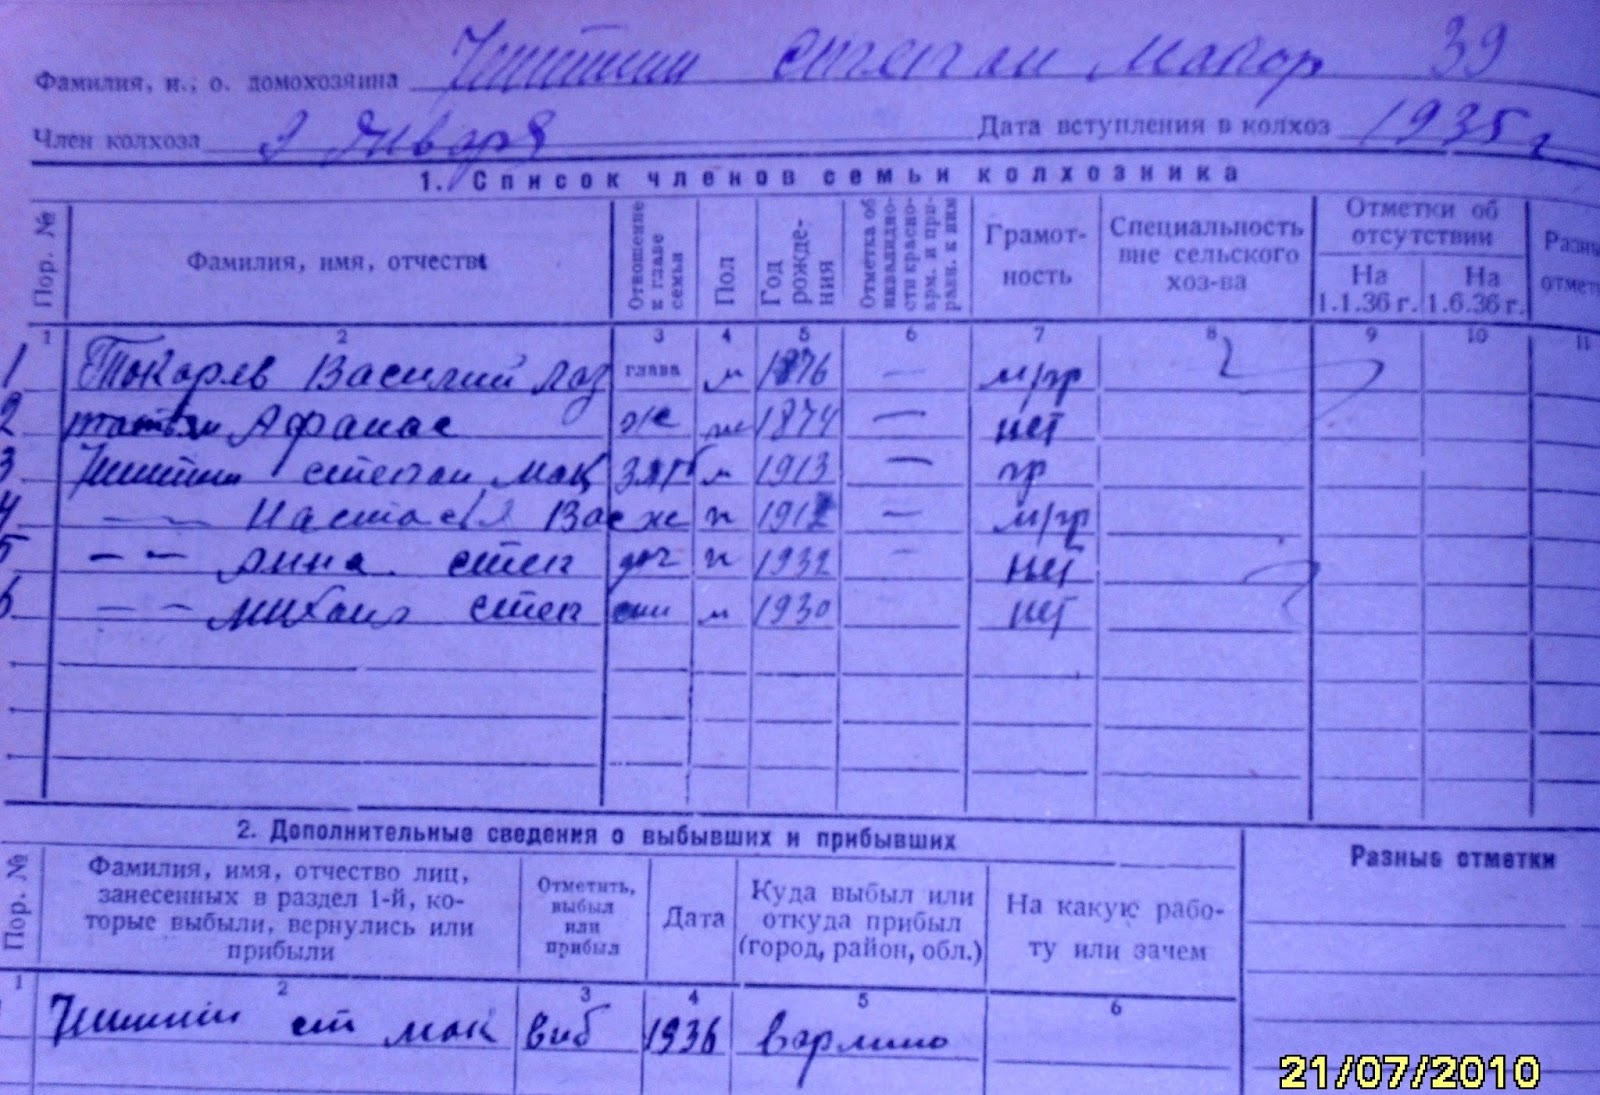 Фамилия, и., о. домохозяина Степан Макар 39
Член колхоза 9 Января Дата вступления в колхоз 1935 г
1. Список членов семьи колхозника
Пор. № Фамилия, имя, отчество Отношение к главе семьи Пол Год рождения Отметка об инвалидности красноарм. и приравн. к ним Грамотность Специальность вне сельского хоз-ва Отметки об отсутствии На 1.1.36 г. На 1.6.36 г. Разн отмет
1 2 3 4 5 6 7 8 9 10 11
1 Токарев Василий Лаз глава м 1876 — м/гр
2 Афанас ж 1874 — нет
3 Степан Мак зять м 1913 — гр
4 — — Настасья Вас ж 191 — м/гр
5 — — Анна Степ доч 1932 — нет
6 — — Михаил Степ сын м 1930 нет
2. Дополнительные сведения о выбывших и прибывших
Разные отметки
Пор. № Фамилия, имя, отчество лиц, занесенных в раздел 1-й, которые выбыли, вернулись или прибыли Отметить, выбыл или прибыл Дата Куда выбыл или откуда прибыл (город, район, обл.) На какую работу или зачем
1 2 3 4 5 6
ст мак выб 1936
21/07/2010